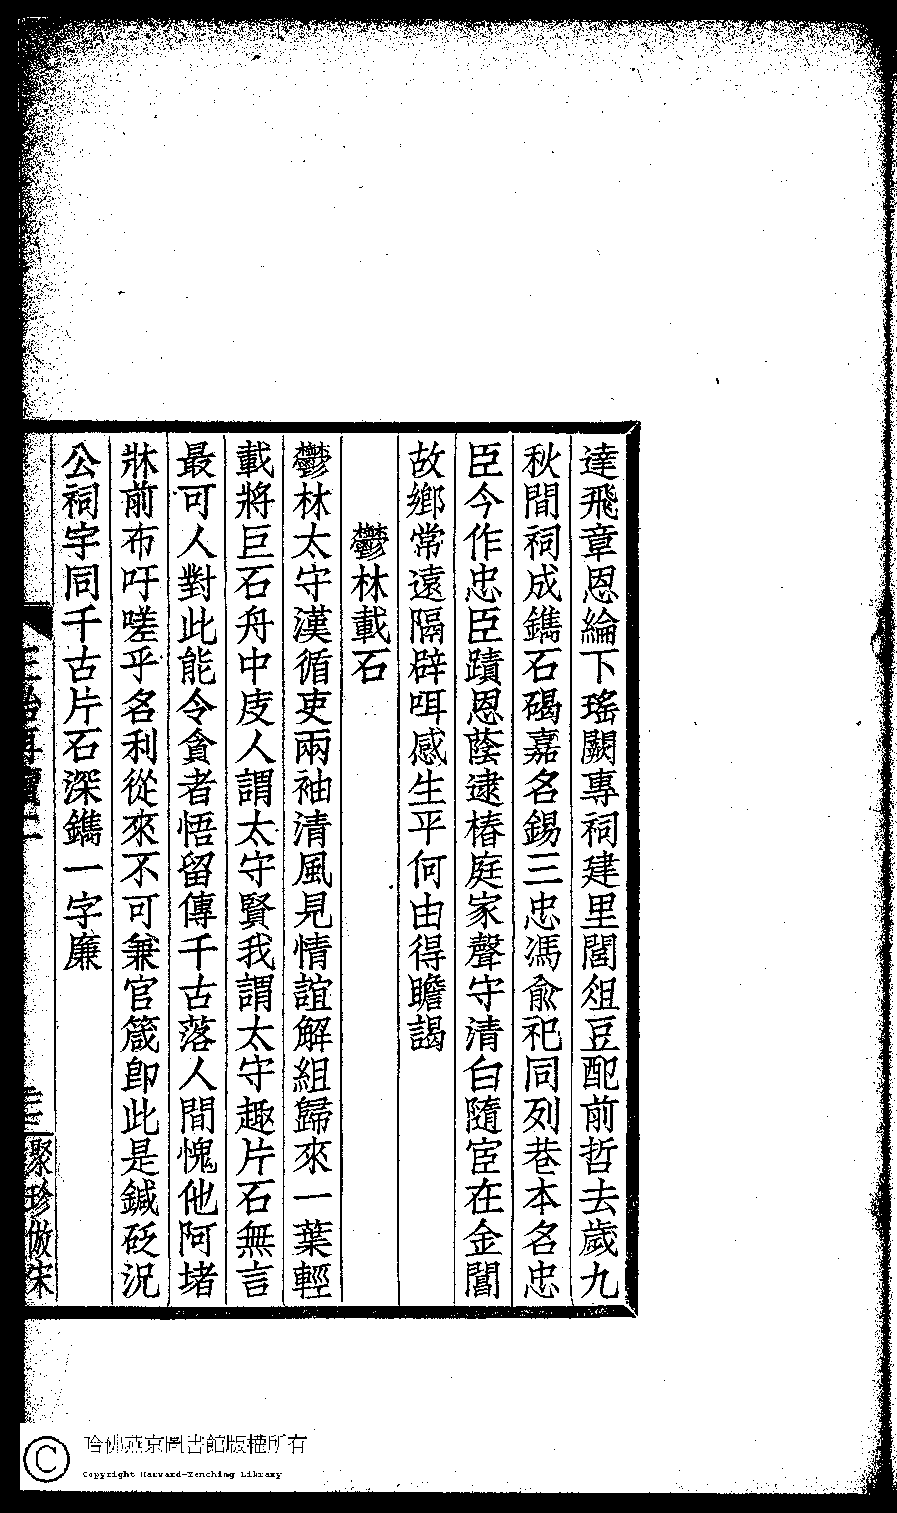 達飛章恩綸下瑤闕專祠建里閭俎豆配前哲去歲九
秋間祠成鐫石碣嘉名錫三忠馮俞祀同列巷本名忠
臣今作忠臣蹟恩蔭逮椿庭家聲守清白隨宦在金閶
故鄉常遠隔辟咡感生平何由得瞻謁
鬱林載石
鬱林太守漢循吏兩袖清風見情誼解組歸來一葉輕
載將巨石舟中庋人謂太守賢我謂太守趣片石無言
最可人對此能令貪者悟留傳千古落人間愧他阿堵
牀前布吁嗟乎名利從來不可兼官箴即此是鍼砭況
公祠宇同千古片石深鐫一字廉
聚珍倣宋
哈佛燕京圖書館版權所有
Copyright Harvard-Yenching Library